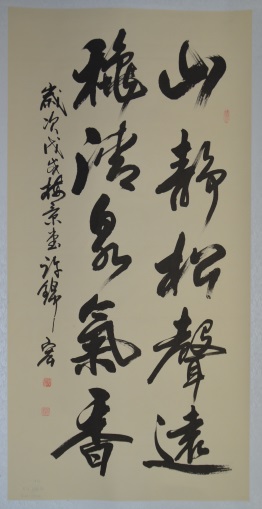 山靜松聲遠
穐清泉氣香
歲次戊戌梅景許錦